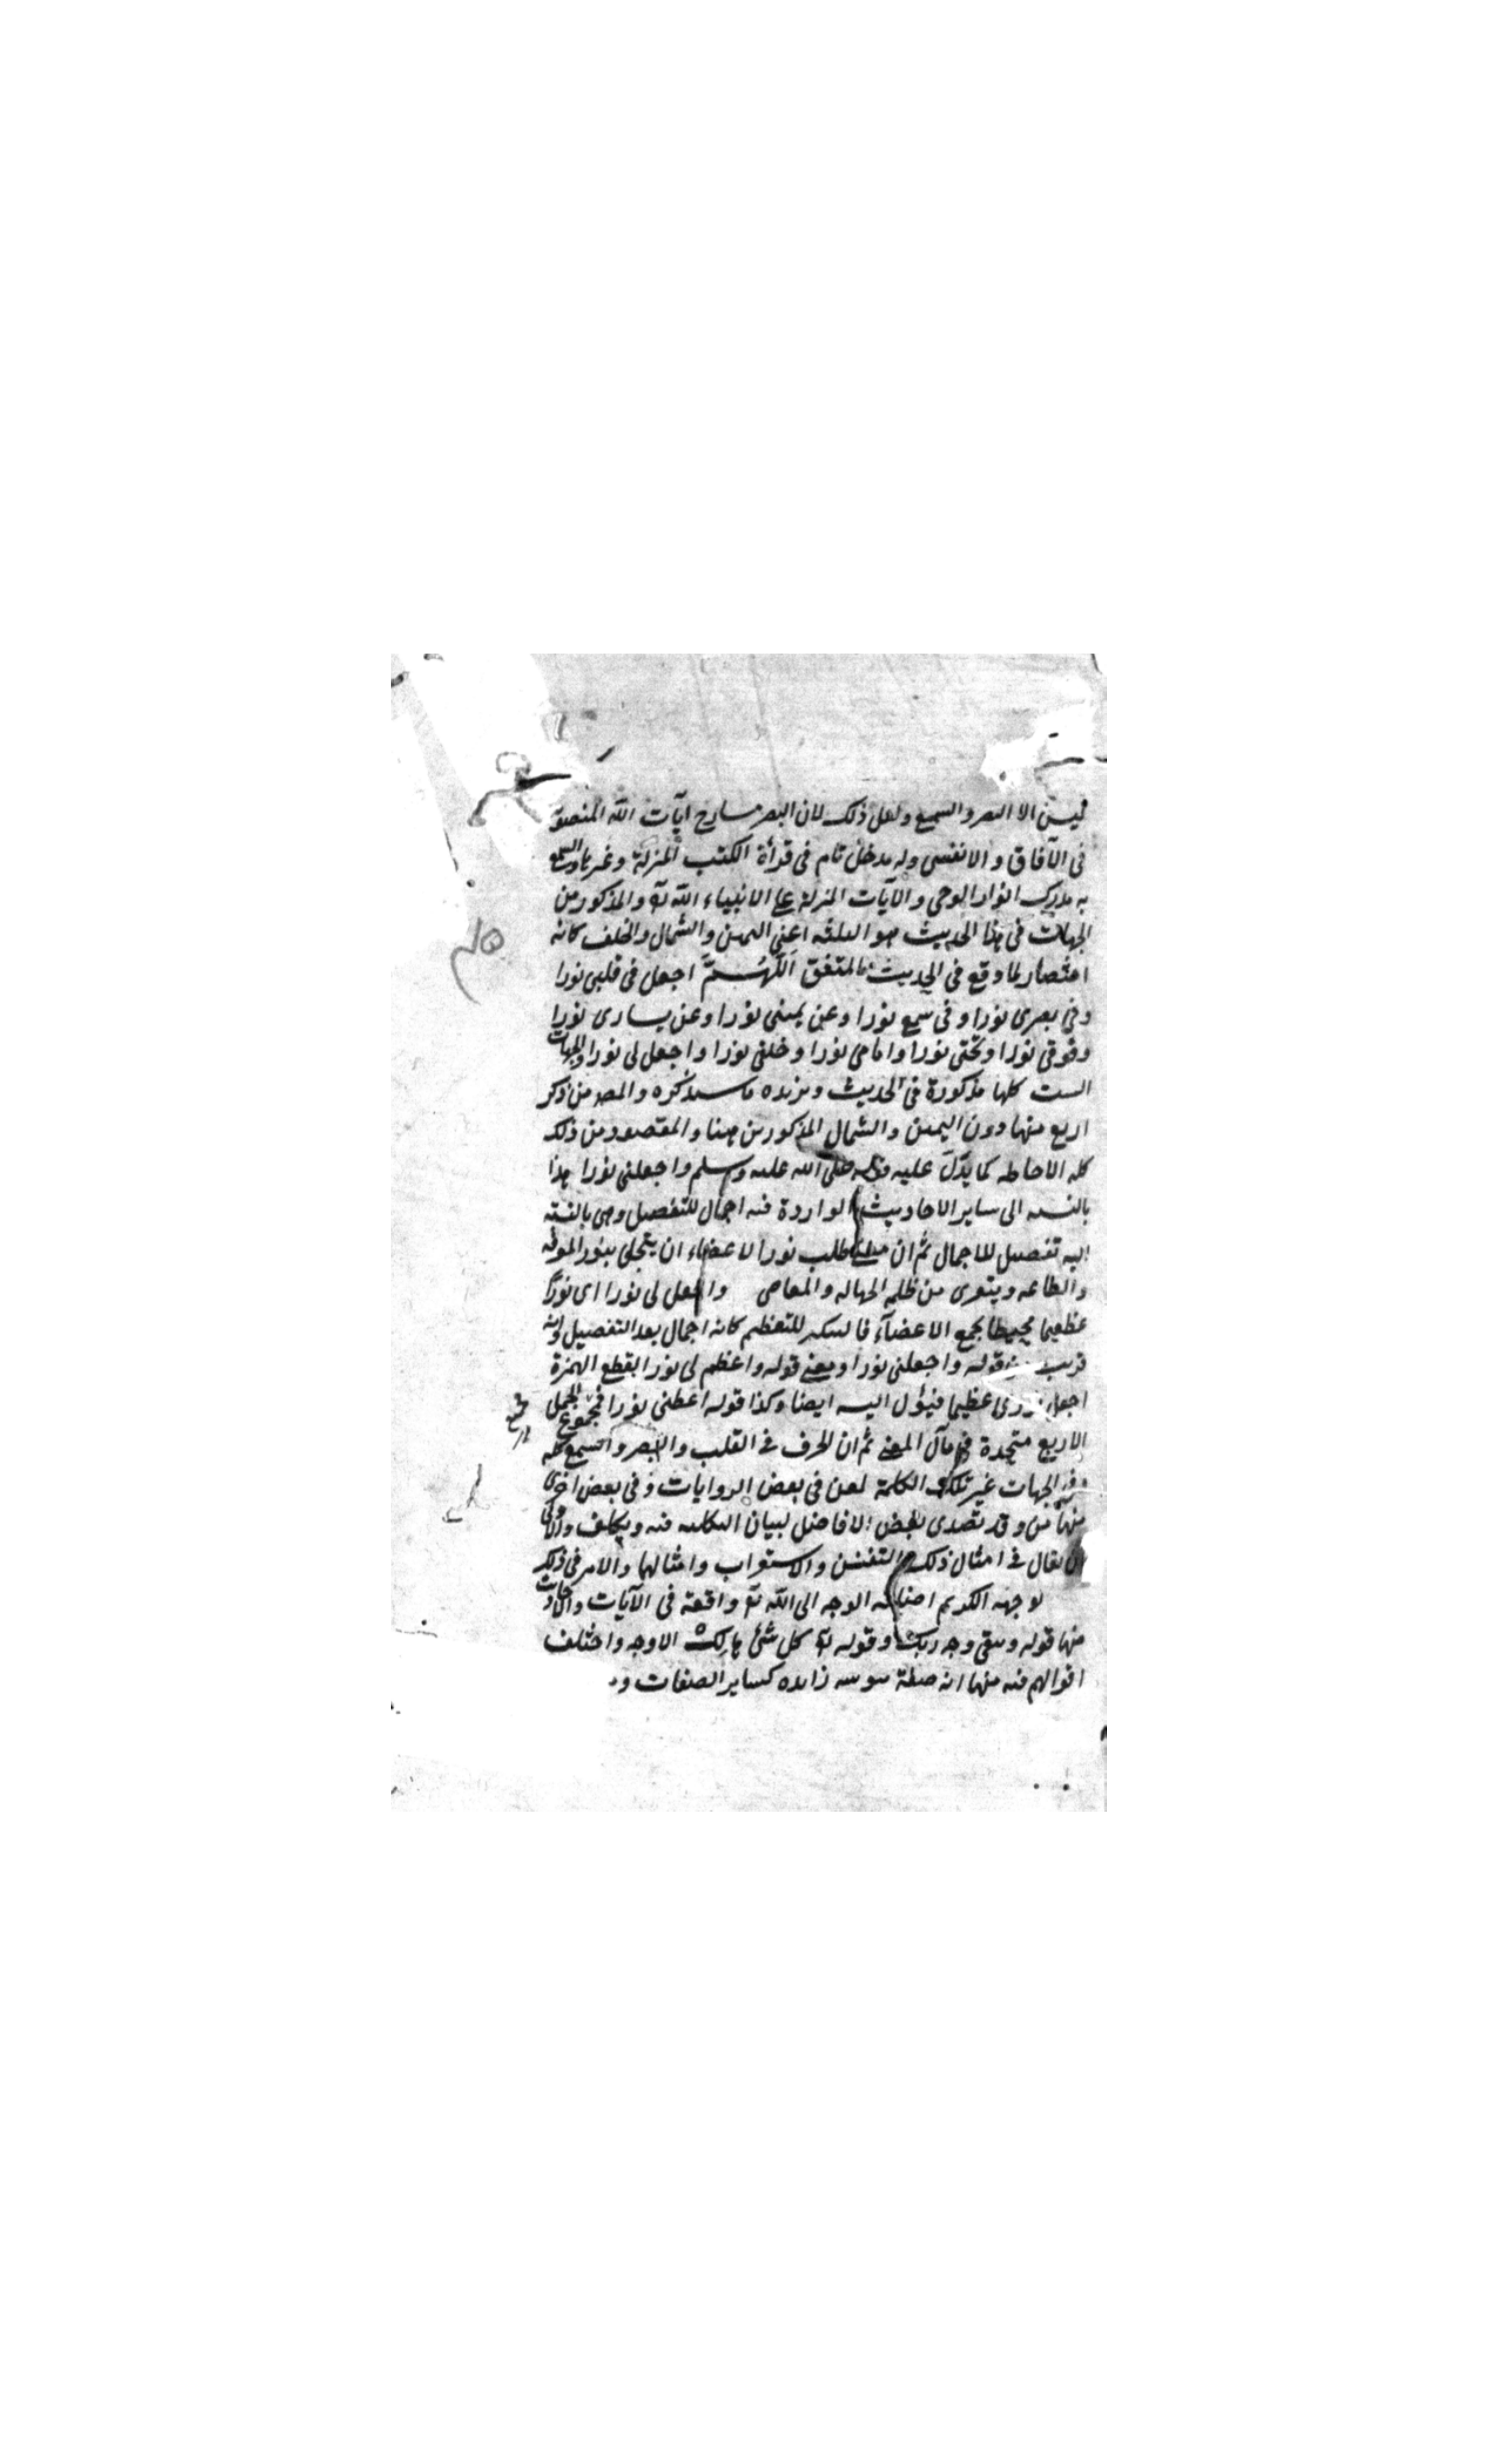 الا البصر والسمع ولعل ذلك لان البصر مسارح ايآت الله المنصوبة
فى الآفاق والانفس وله مدخل تام فى قرأة الكتب المنزلة وغيرها والسمع
به مدرك انوار الوحى والآيات المنزلة على الانبياء الله تع والمذكور من
الجهات فى هذا الحديث هو الثلثه اعنى اليمين والشمال والخلف كانه
اختصار لما وقع فى الحديث المتفق اللّهُمَّ اجعل فى قلبى نورا
وفى بصرى نورا وفى سمع نورا وعن يمينى نورا وعن يسارى نورا
وفوقى نورا وتحتى نورا وامامى نورا وخلفى نورا واجعل لى نورا والجهات
الست كلها مذكورة فى الحديث ويزيده ما سيذكره والمصر من ذكر
اربع منها دون اليمين والشمال المذكورين هنا والمقصود من ذلك
كله الاحاطه كما يدلّ عليه قوله صلى الله عليه وسلم واجعلنى نورا هذا
بالنسبه الى ساير الاحاديث الواردة فيه اجمال للتفصيل وهى بالنسبة
اليه تفصيل للاجمال ثم ان معنى طلب نور الاعضاء ان يتجلى بنور المعرفه
والطاعه ويتعرى من ظلمه الجهاله والمعاصى واجعل لى نورا اى نورًا
عظيما محيطا بجميع الاعضآء فالتنكير للتعظيم كانه اجمال بعد التفصيل وانه
قريب من قوله واجعلنى نورا ومعنى قوله واعظم لى نورا بقطع الهمزة
اجعل نورى عظيما فيؤل اليه ايضا وكذا قوله اعطنى نورا فمجموع الجمل
الاربع متحدة فى مآل المعنى ثم ان الحرف فى القلب والبصر والسمع كله
فى وفى الجهات غير تلك الكلمة لعن فى بعض الروايات وفى بعض اخرى
منها من وقد تصدى بعض الافاضل لبيان النكته فيه وتكلف والاولى
ان يقال فى امثال ذلك التفنن والاستعراب وامثالها والامر فى ذلك
لوجهه الكريم اضافه الوجه الى الله تع واقعة فى الآيات والاحاديث
منها قوله ويبقى وجه ربك وقوله تع كل شئ هالك الا وجه واختلف
اقوالهم فيه منها انه صفة ثبوتيه زايده كساير الصفات